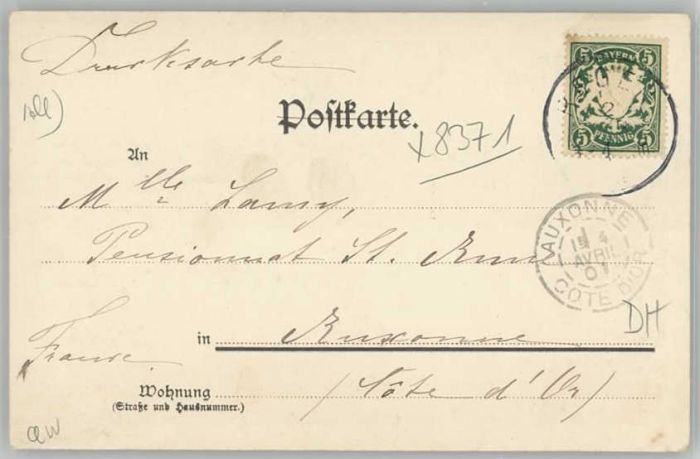 Drucksache
Postkarte.
x8371
An
Mlle Lamy,
Pensionnat St. Anne
in Auxonne
France
(Côte d'Or)
Wohnung
(Straße und Hausnummer.)
5 BAYERN 5
5 PFENNIG 5
AUXONNE
4
AVRIL
01
COTE D'OR
DH